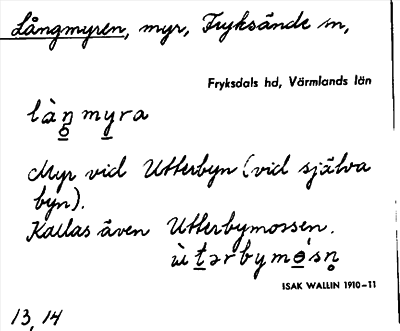 Långmyren, myr, Fryksände sn,
Fryksdals hd, Värmlands län
làn̥ myra
Myr vid Utterbyn (vid själva
byn).
Kallas även Utterbymossen.
ùtərbymo̱'sn̥
ISAK WALLIN 1910-11
13, 14